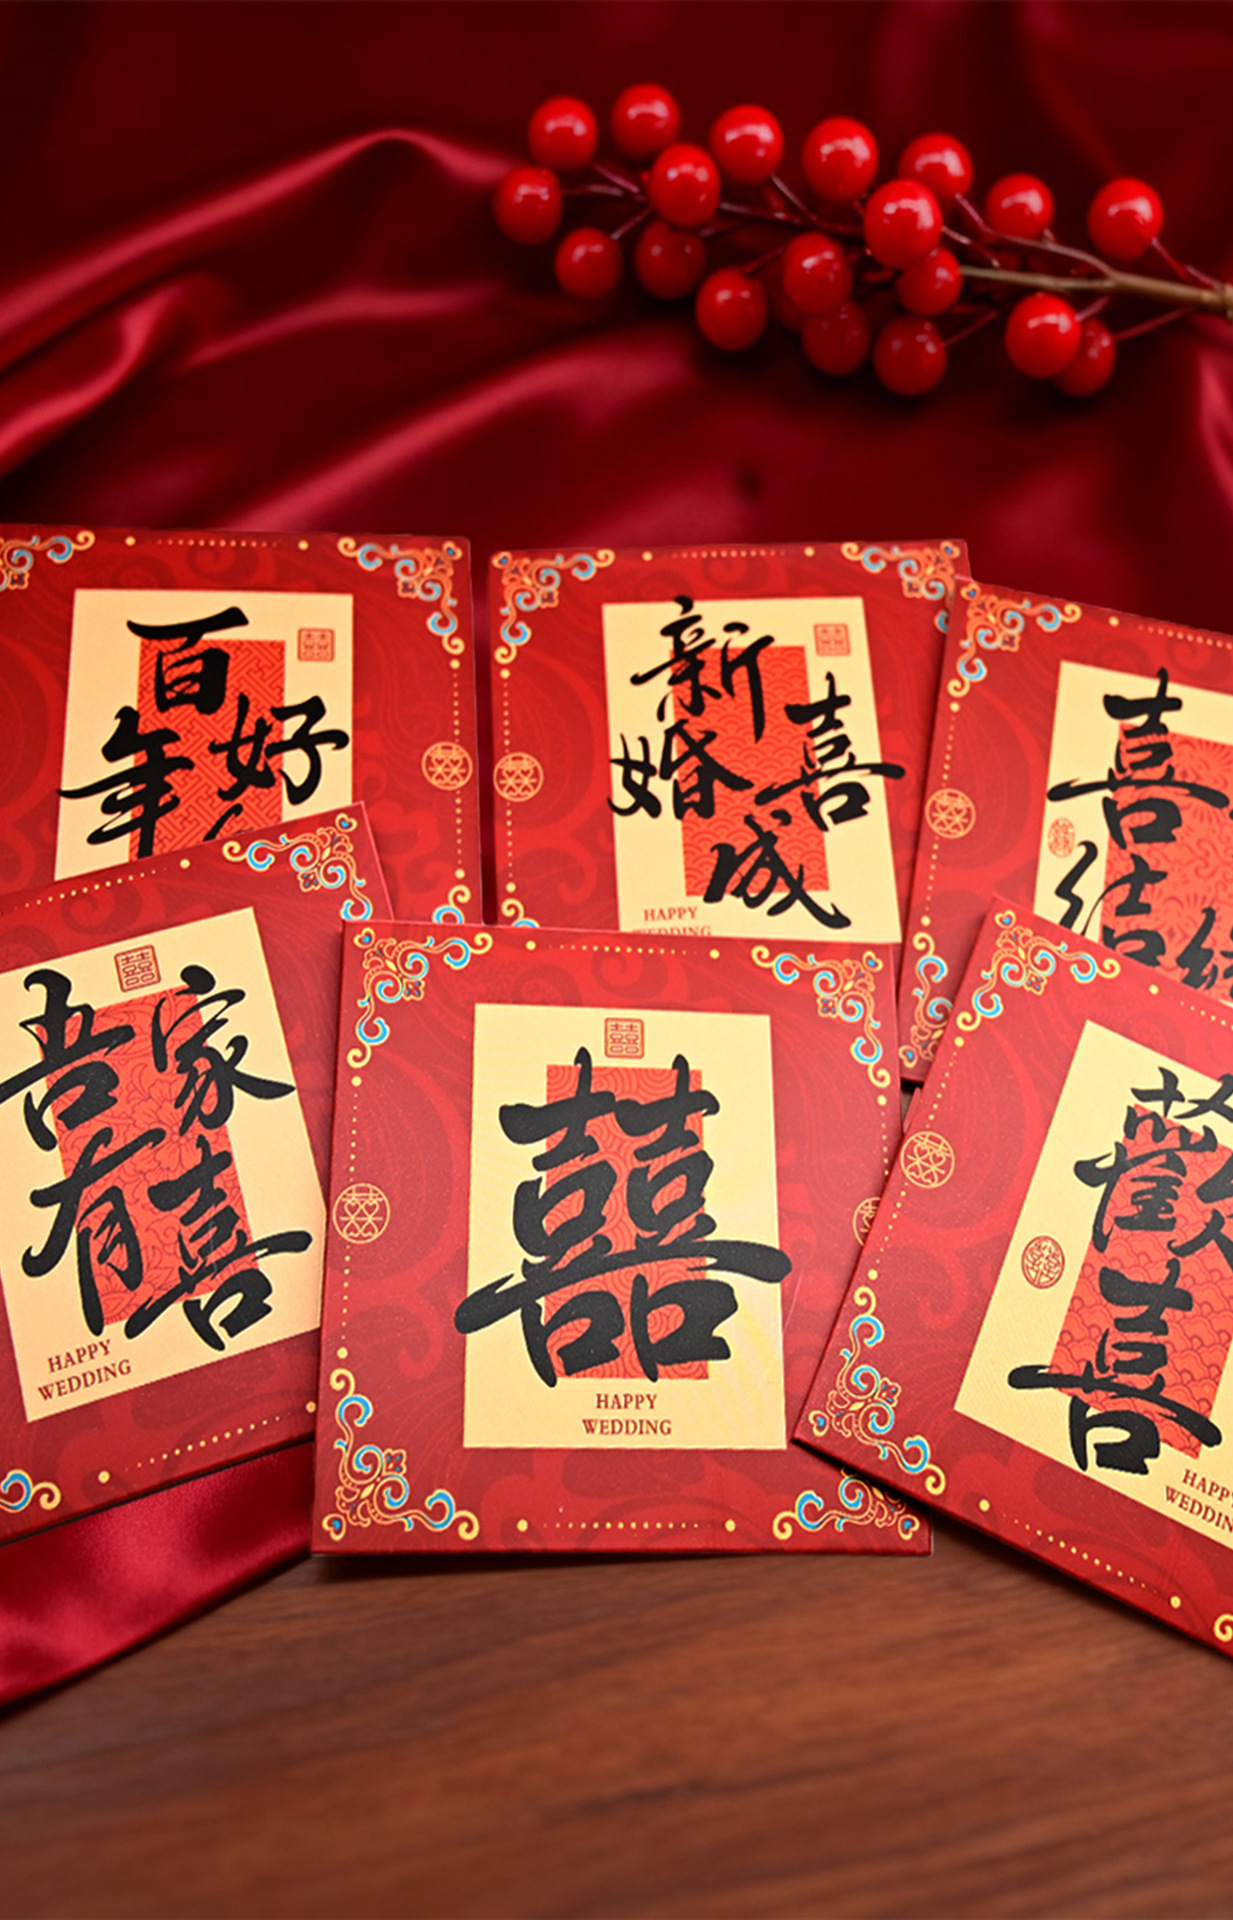 百年好
新婚喜成
HAPPY
WEDDING
喜結
吾家有喜
HAPPY
WEDDING
囍
囍
HAPPY
WEDDING
歡喜
HAPPY
WEDDIN